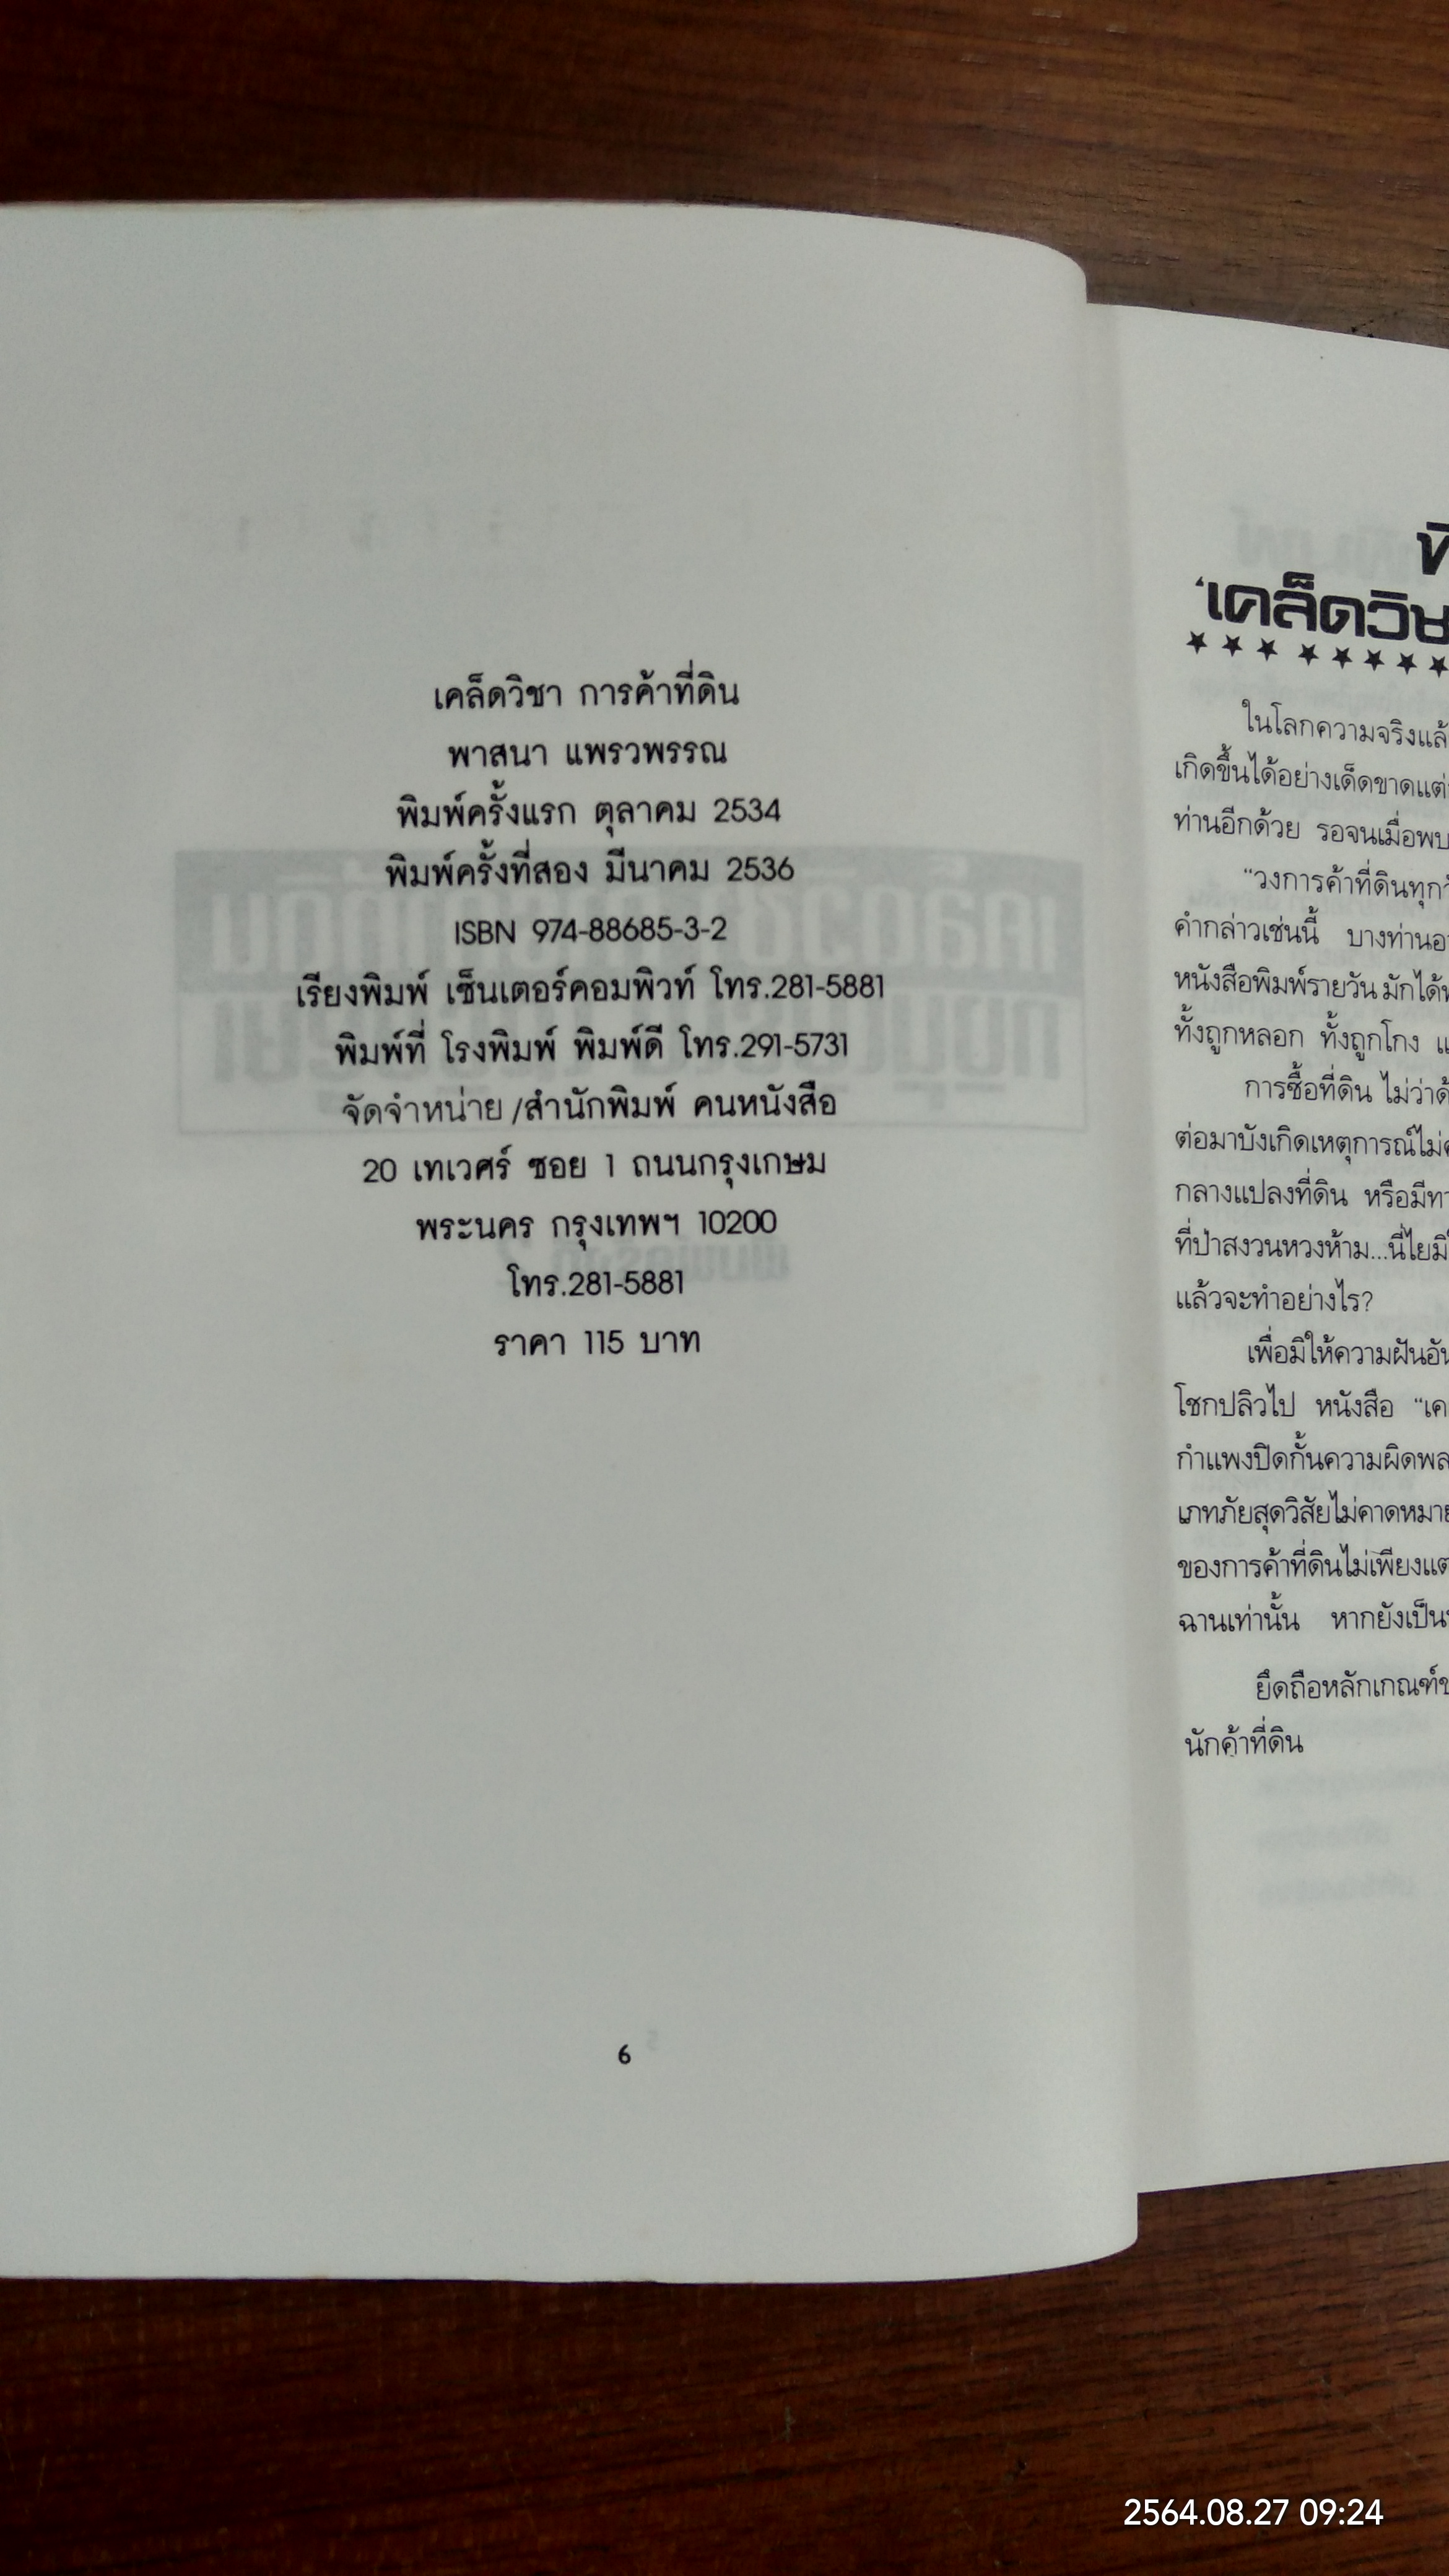 เคล็ดวิชา การค้าที่ดิน
พาสนา แพรวพรรณ
พิมพ์ครั้งแรก ตุลาคม 2534
พิมพ์ครั้งที่สอง มีนาคม 2536
ISBN 974-88685-3-2
เรียงพิมพ์ เซ็นเตอร์คอมพิวท์ โทร.281-5881
พิมพ์ที่ โรงพิมพ์ พิมพ์ดี โทร.291-5731
จัดจำหน่าย/สำนักพิมพ์ คนหนังสือ
20 เทเวศร์ ซอย 1 ถนนกรุงเกษม
พระนคร กรุงเทพฯ 10200
โทร.281-5881
ราคา 115 บาท
6
'เคล็ดวิช
★ ★ ★ ★ ★ ★ ★ ★
ในโลกความจริงแล้
เกิดขึ้นได้อย่างเด็ดขาดแต่
ท่านอีกด้วย รอจนเมื่อพบ
"วงการค้าที่ดินทุก
คำกล่าวเช่นนี้ บางท่าน
หนังสือพิมพ์รายวัน มักได้
ทั้งถูกหลอก ทั้งถูกโกง แ
การซื้อที่ดิน ไม่ว่าด้
ต่อมาบังเกิดเหตุการณ์ไม่
กลางแปลงที่ดิน หรือมีทา
ที่ป่าสงวนหวงห้าม...นี่ไยมิ
แล้วจะทำอย่างไร?
เพื่อมิให้ความฝันอัน
โชกปลิวไป หนังสือ "เค
กำแพงปิดกั้นความผิดพล
เภทภัยสุดวิสัยไม่คาดหมาย
ของการค้าที่ดินไม่เพียงแต
ฉานเท่านั้น หากยังเป็น
ยึดถือหลักเกณฑ์ข
นักค้าที่ดิน
2564.08.27 09:24